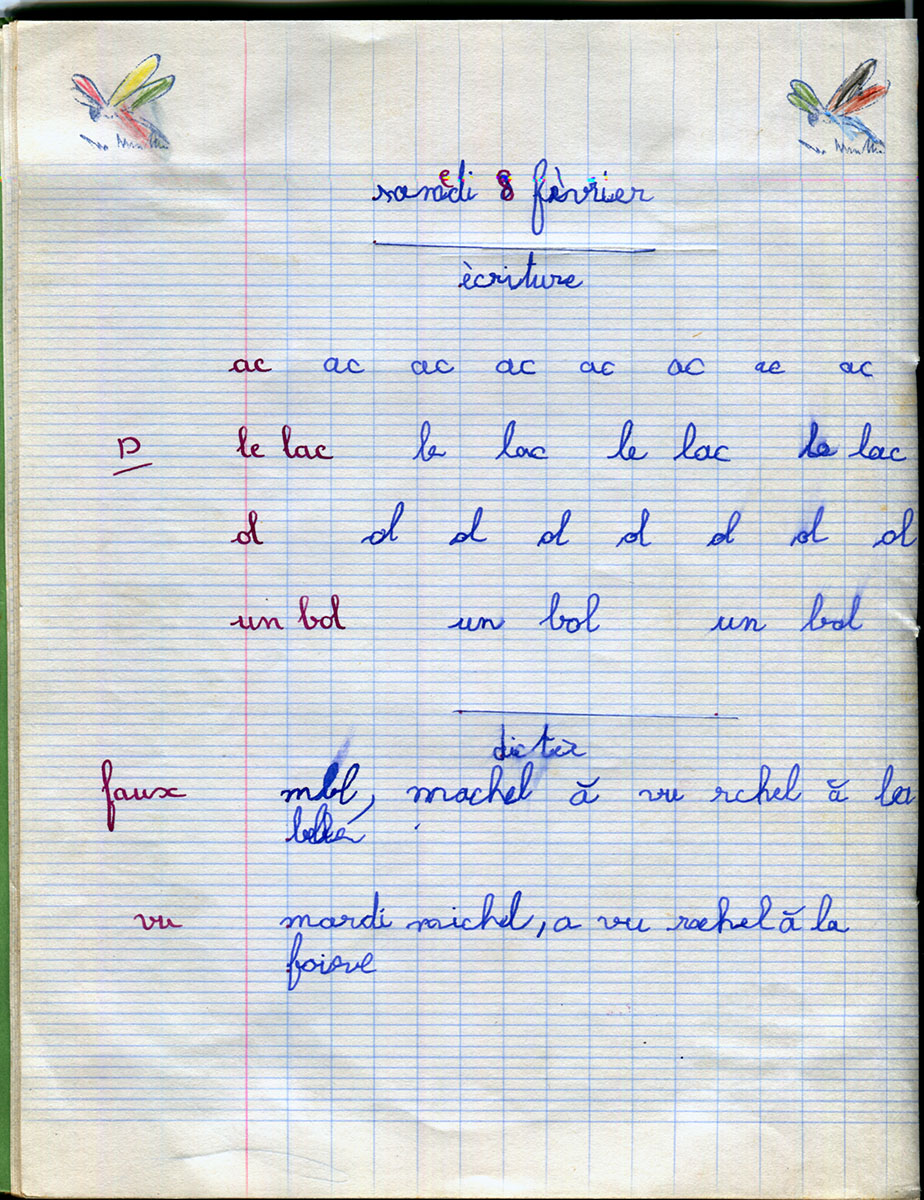 samedi 8 fèvrier
ècriture
ac ac ac ac ac ac ac ac
D le lac le lac le lac le lac
ol ol ol ol ol ol ol ol
un bol un bol un bol
dictèr
faux mbl, machel ă vu rchel ă la
vu mardi michel, a vu rachel ă la
foirve